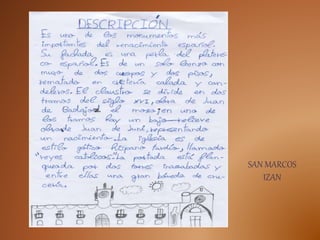 DESCRIPCIÓN.
Es uno de los monumentos más
importantes del renacimiento español.
Su fachada es una perla del plateres
co español. Es de un solo lienzo con
muro de dos cuerpos y dos pisos,
rematado en crestería calada y can-
deleros. El claustro se divide en dos
tramos del siglo XVI, obra de Juan
de Badajoz del mozo; en uno de
los tramos hay un bajo-relieve
obra de Juan de Juni, representando
un nacimiento. La iglesia es de
estilo gótico Hispano tardío, llamado
"reyes católicos. La portada está flan-
queada por dos torres inacabadas y
entre ellas una gran bóveda de cru-
cería.
SAN MARCOS
IZAN